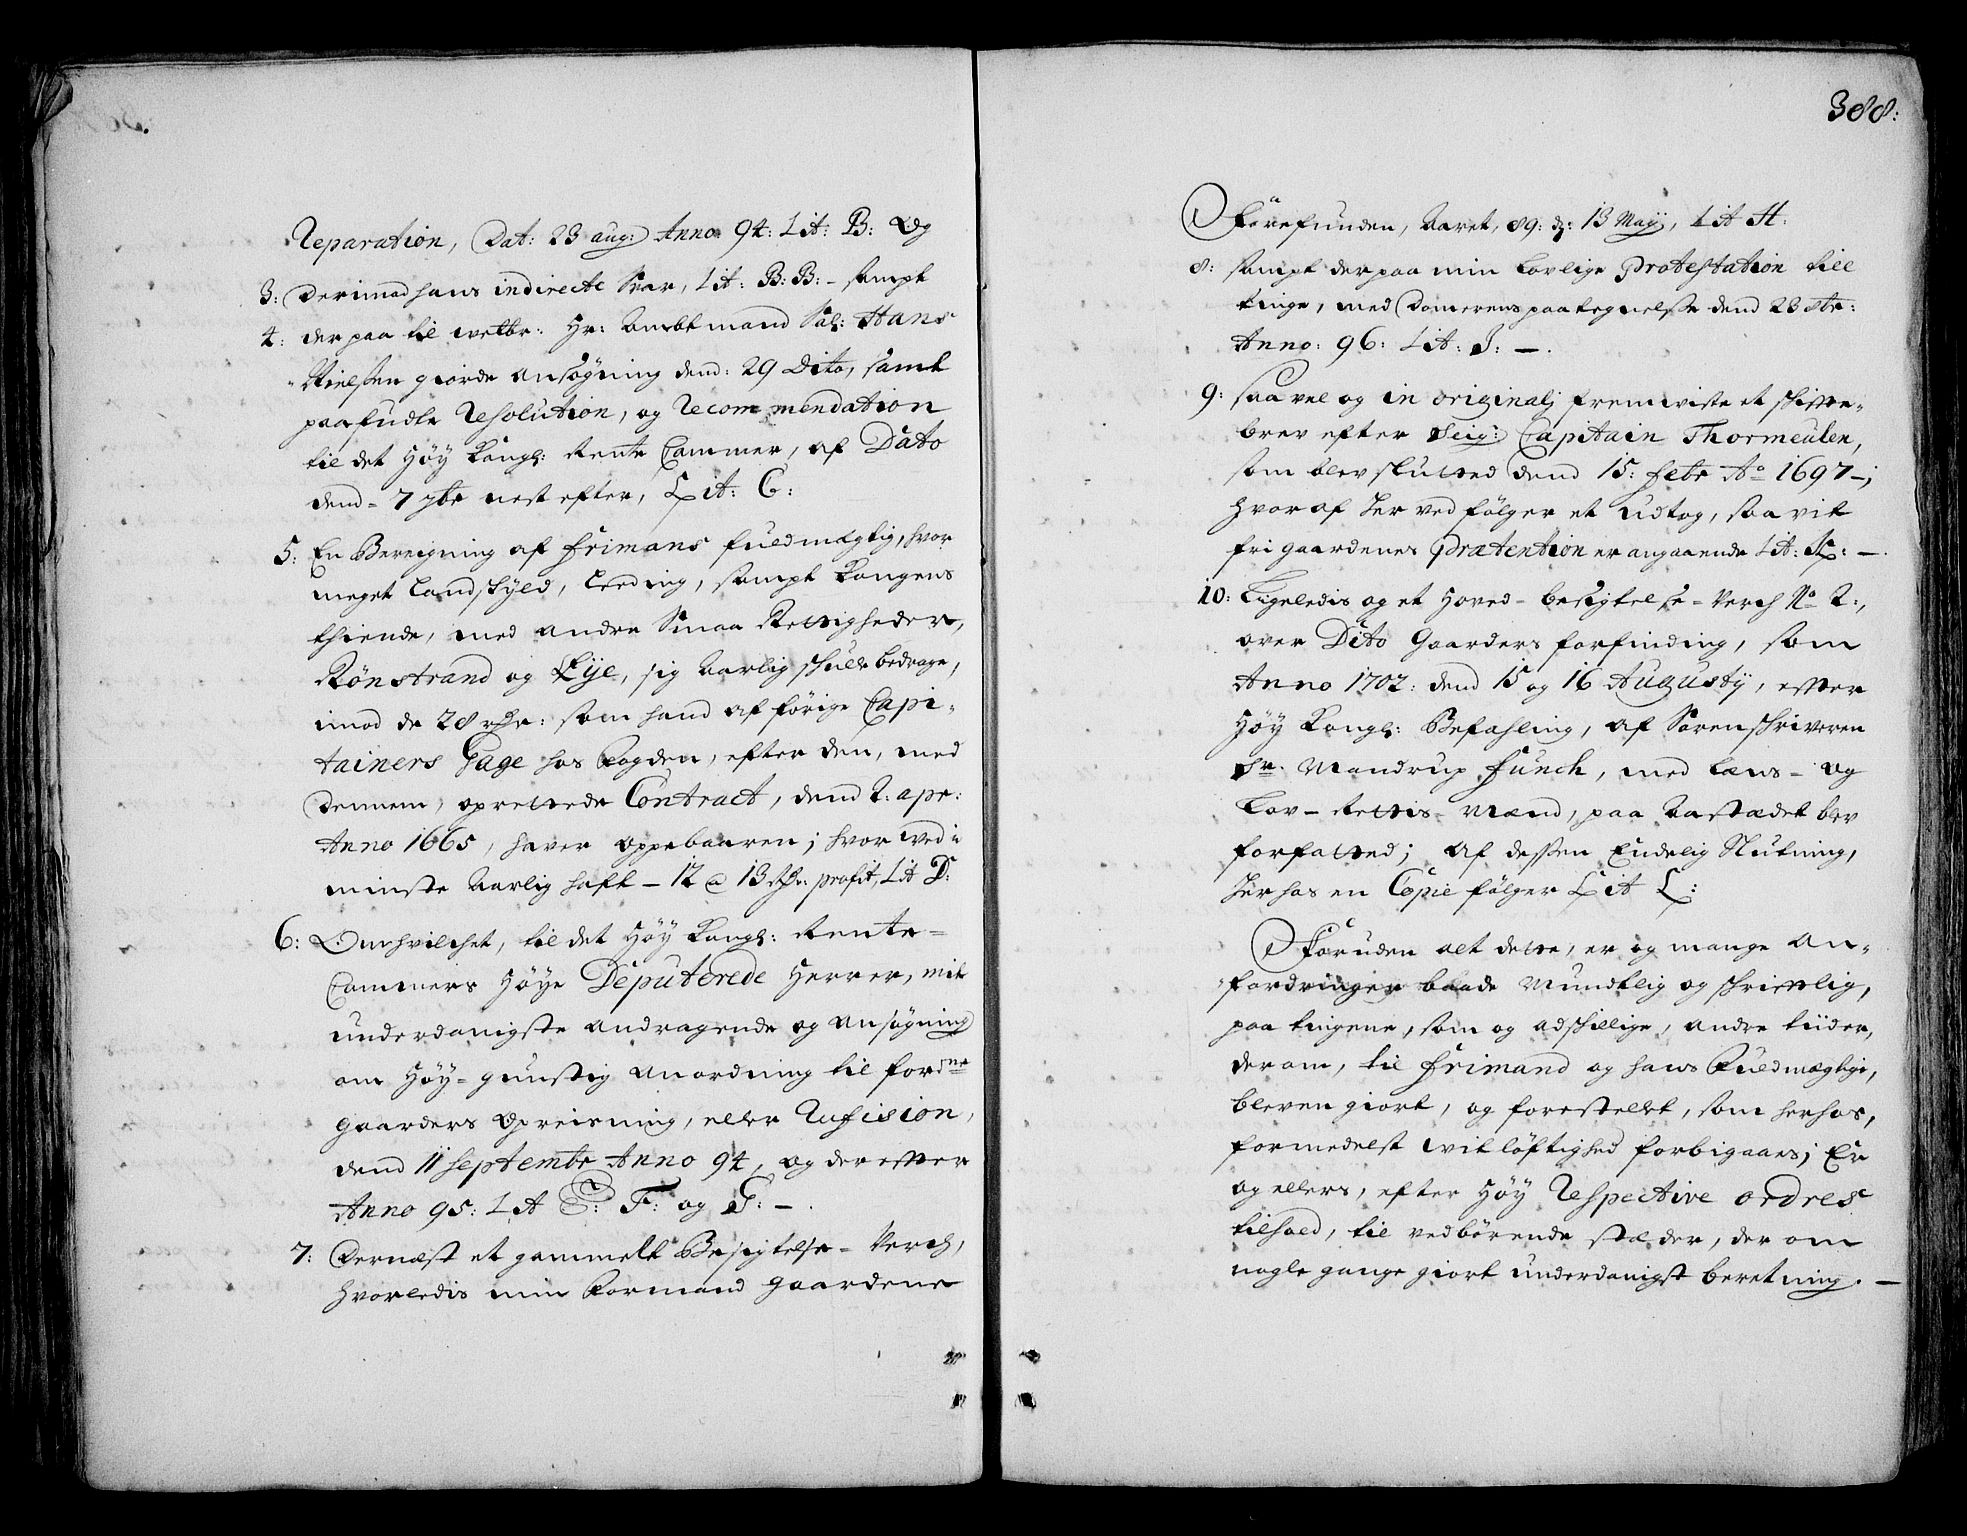 Reparation, Dat: 23 aug: Anno 94: Lit: B: Og
3: Derimod hans indirecte Svar, Lit: B: B: - sampt
4: der paa til welbr: Hr: Ambtmand Sal: Hans
Nielsen giorde ansøgning dend: 29 Dito, samt
paafudte Resolution, og Recommendation
til det Høy Kongl: Rente Cammer, af Dato
dend - 7 7br nest efter, Lit: C:
5: En Beregning af Frimans fuldmægtig, hvor
meget Landskyld, Leeding, sampt Kongens
thiende, med andre Smaa Rettigheder,
Rönstrand og Eye, sig Aarlig skulle bedrage,
imod de 28 rdr: som hand af förige Capi-
tainers Gage hos Fogden, efter den, med
Dennem, oprettede Contract, dend 2: apr:
Anno 1665, haver oppebaaren; hvor wed i
minste Aarlig haft - 12 a 13 rdr: profit, Lit D:
6: Omhvilchet, til det Høy Kongl: Rente-
Cammers Høye Deputerede Herrer, mit
underdanigste andragende og ansøgning
om Høy-gunstig anordning til fordne
gaarders Opreisning, eller Rufision,
dend 11 septembr Anno 94, og derefter
Anno 95: Lit E: F: og G: -.
7: Dernæst et gammelt Besigtelse - Verch,
hvorledis min Formand gaardene
388:
Forefunden, Aaret, 89: d: 13 Maij, Lit H:
8: sampt derpaa min lovlige Protestation till
tinge, med Domerens paategnelse dend 23 8br:
Anno: 96: Lit: J: -.
9: saa vel og in originali fremviste et skifte-
brev efter Seig: Capitain Thormeulen,
som blev slutted dend 15: febr Ao 1697 -;
hvor af her ved følger et udtog, saa vit
fri gaardenes Prætention er angaaende Lit: K: -.
10: Ligeledis og et Hoved - besigtelse - Verch No 2:,
over Dito Gaarders forfinding, som
Anno 1702: dend 15 og 16 Augusty, efter
Høy Kongl: Befahling, af Sorenskriveren
Sr. Mandrup Funch, med Læns- og
Lov- Rettis- Mænd, paa Aastædet blev
forfatted; af dessen Endelig Slutning,
her hos en Copie følger Lit L:
Foruden alt dette, er og mange an-
fordringer baade Mundtlig og skriftlig,
paa tingene, som og adskillige, andre tiider,
derom, til Frimand og hans Fuldmægtige,
bleven giort, og forestellet, som herhos,
formedelst witløftighed forbigaaes; Er
og ellers, efter Høy Respective ordres
tilhold, til vedbörende stæder, der om
nogle gange giort underdanigst beretning. -